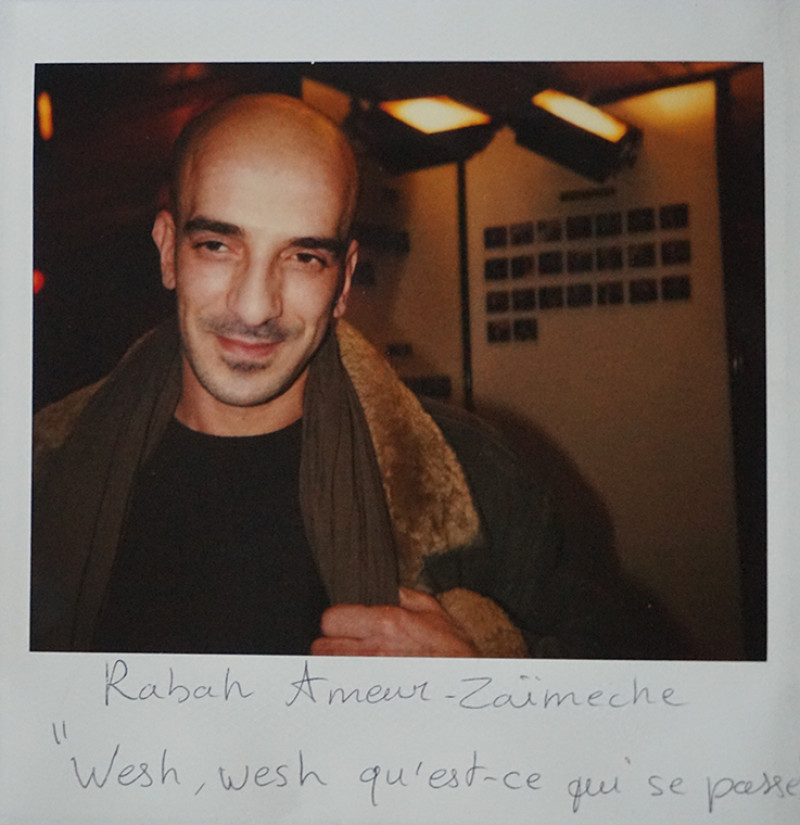 Rabah Ameur-Zaïmeche
"Wesh, wesh qu'est-ce qui se passe